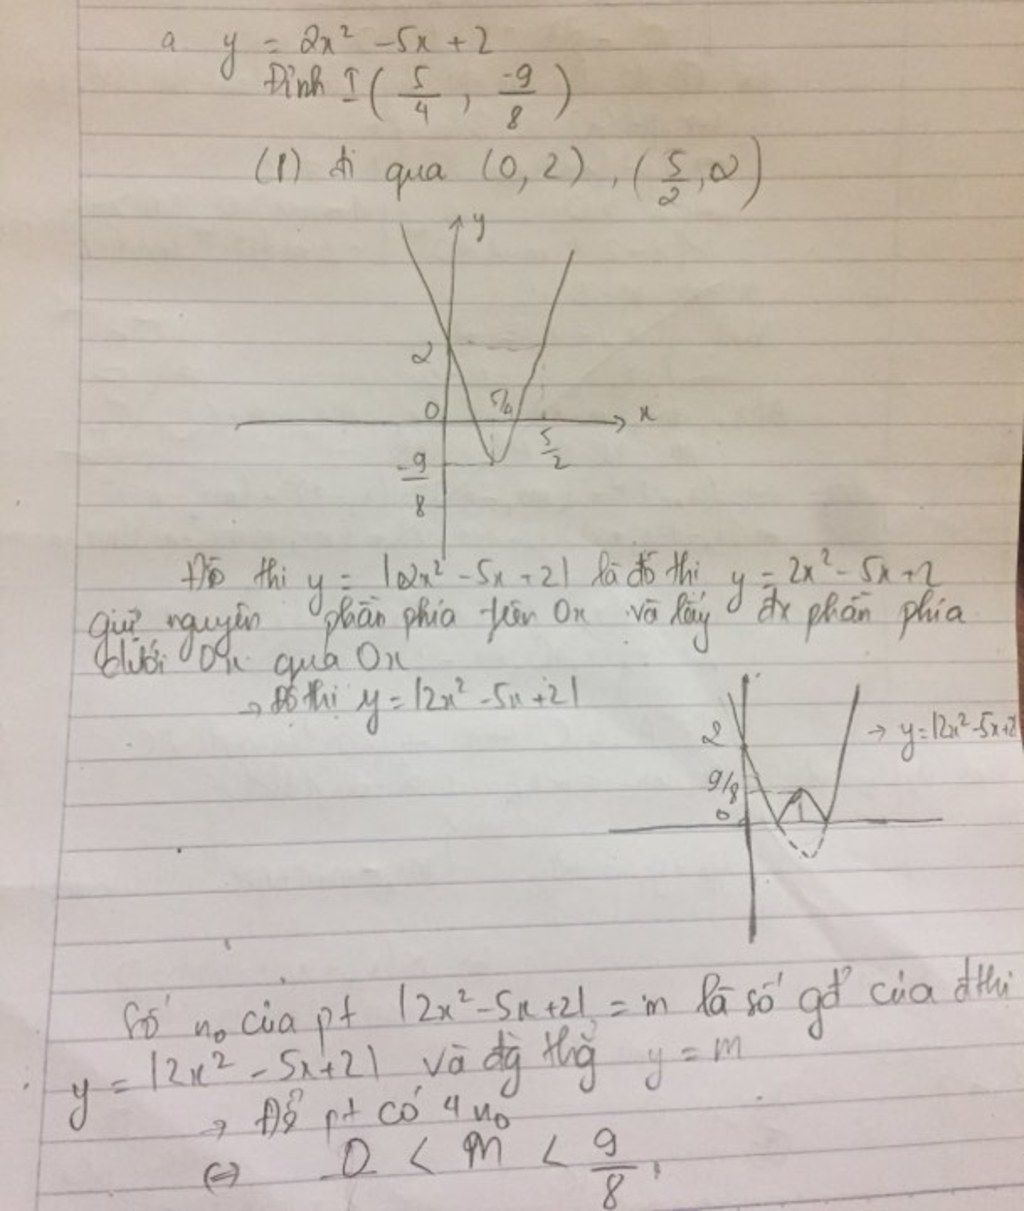 a y = 2x² -5x + 2
Đỉnh I ( 5/4 , -9/8 )
(P) đi qua (0, 2) , ( 5/2 , 2 )
y
2
0 5/4 x
5/2
-9/8
Đồ thi y = |2x² - 5x + 2| là đồ thi y = 2x² - 5x + 2
giữ nguyên phần phía trên Ox và lấy đx phần phía
dưới Ox qua Ox
→ Đồ thi y = |2x² - 5x + 2|
2 → y = |2x² - 5x + 2|
9/8
0
Số n₀ của pt |2x² - 5x + 2| = m là số gđ của đthi
y = |2x² - 5x + 2| và đg thg y = m
→ Để pt có 4 n₀
⇔ 0 < m < 9/8 .